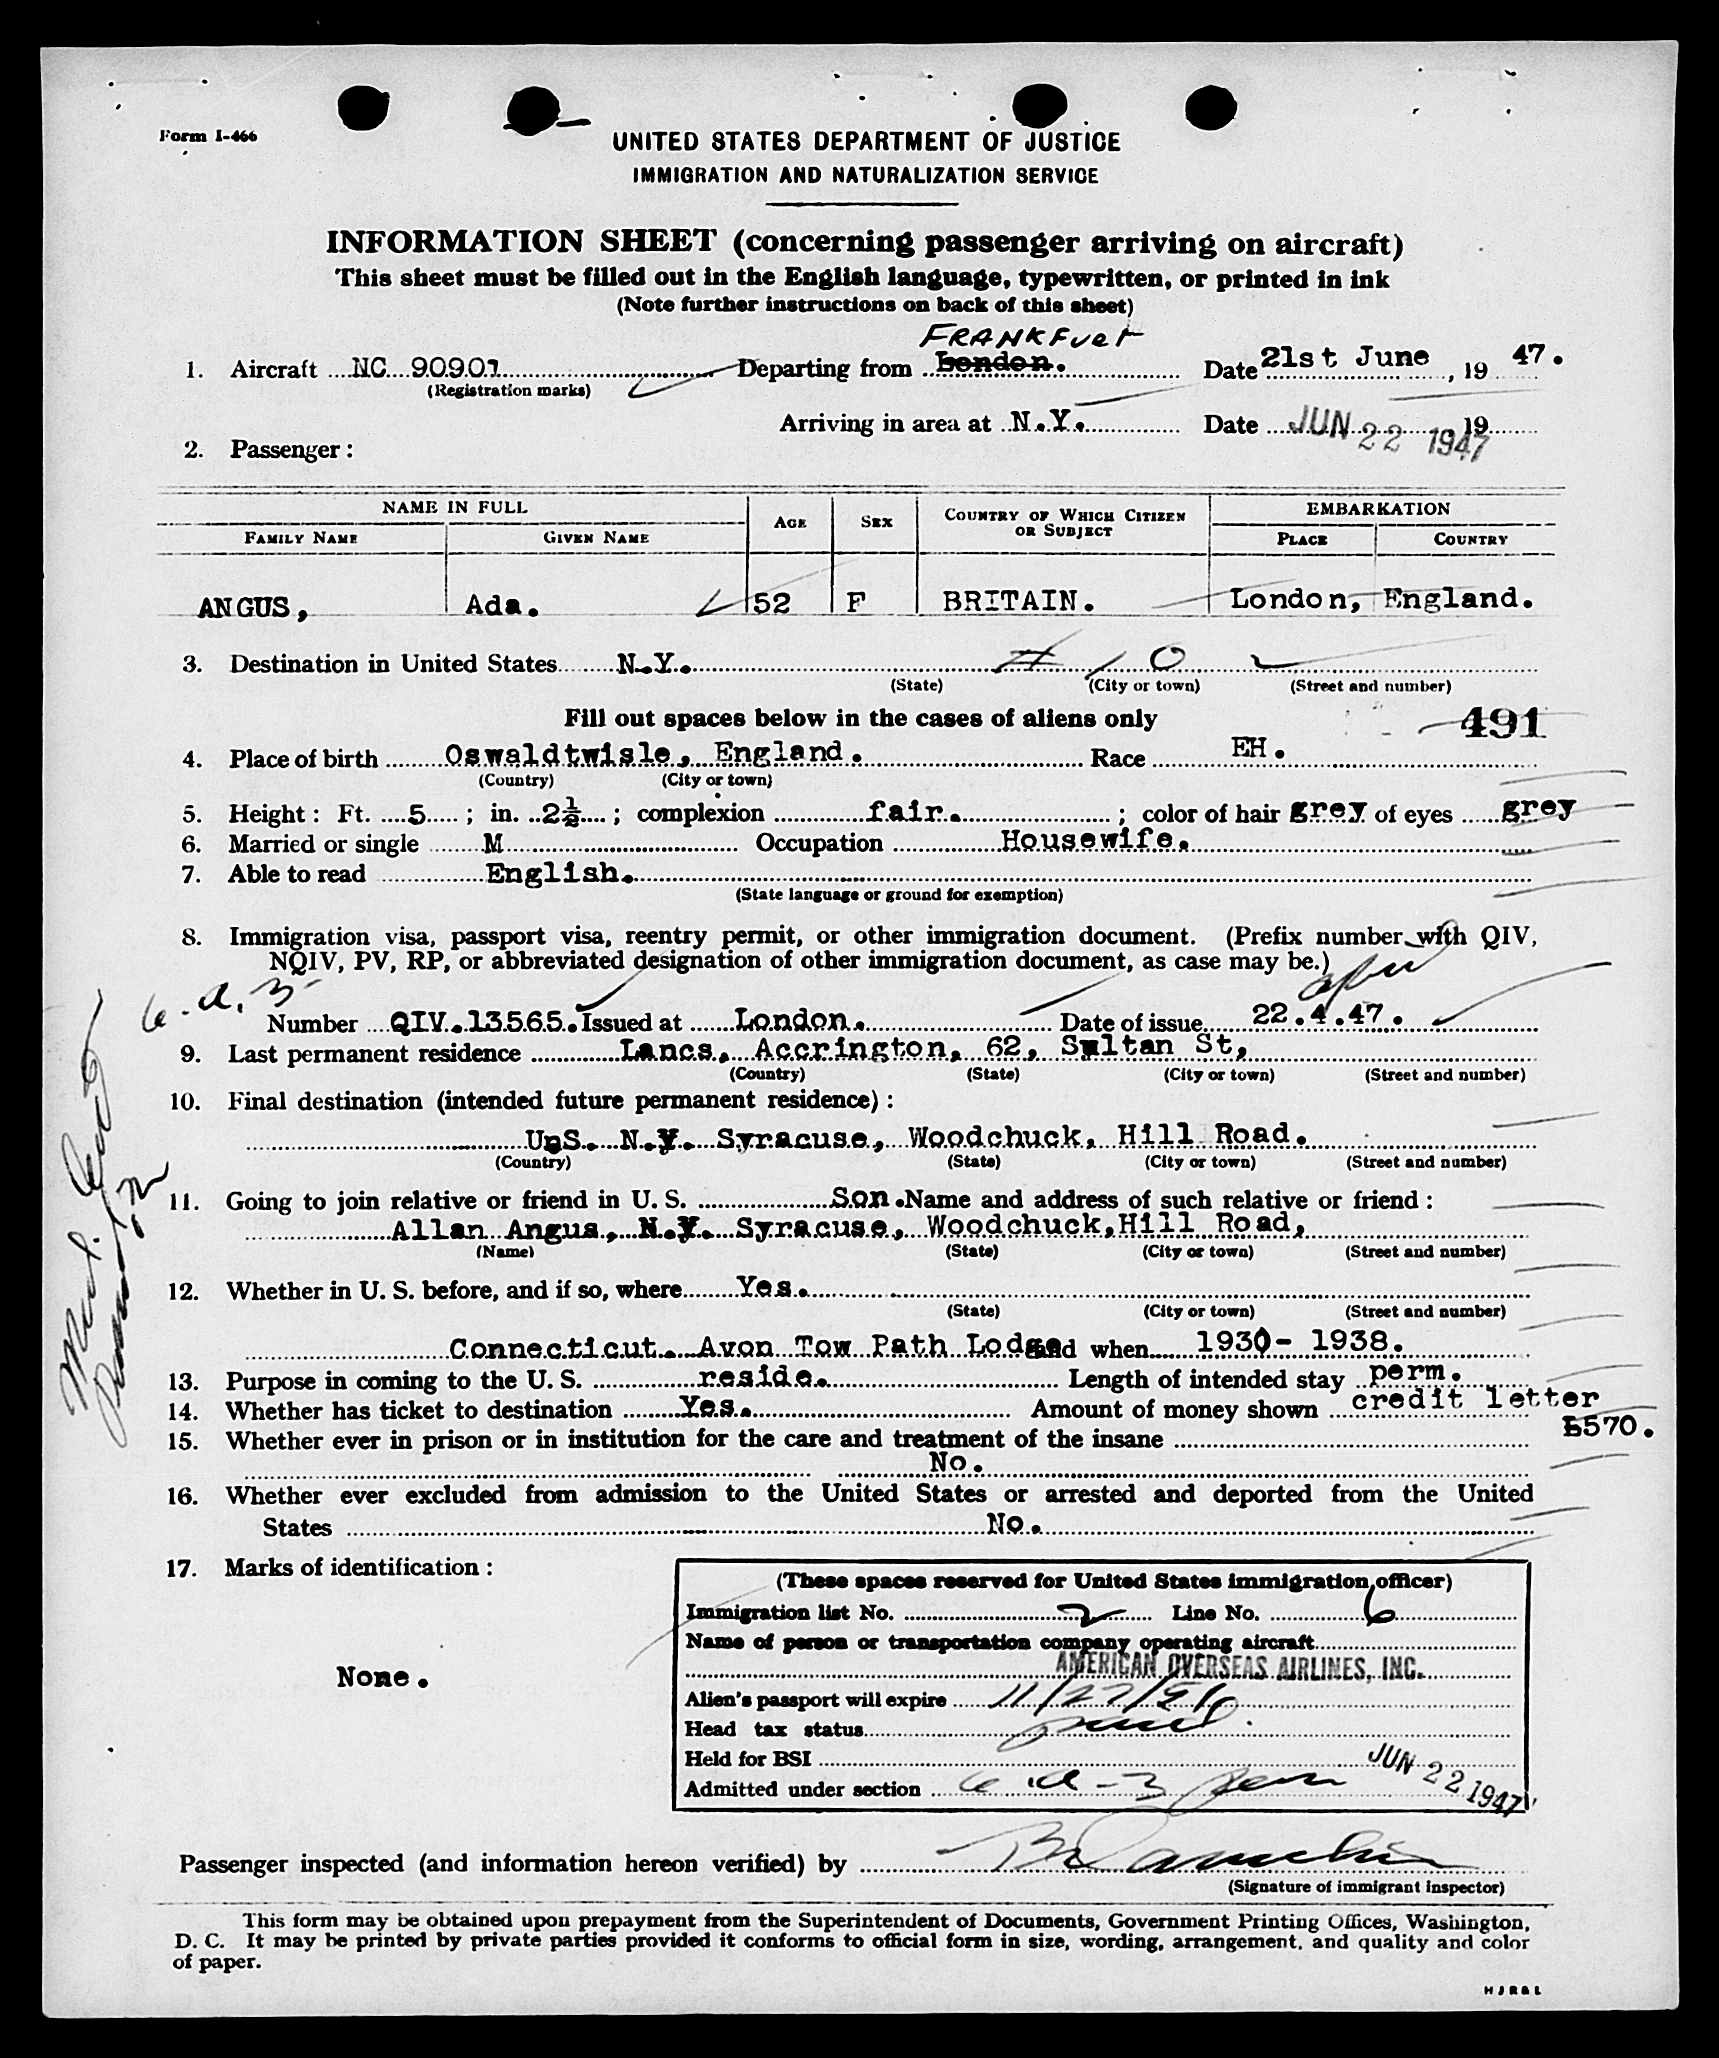 Form I-466
UNITED STATES DEPARTMENT OF JUSTICE
IMMIGRATION AND NATURALIZATION SERVICE
INFORMATION SHEET (concerning passenger arriving on aircraft)
This sheet must be filled out in the English language, typewritten, or printed in ink
(Note further instructions on back of this sheet)
FRANKFURT
1. Aircraft NC 90901 Departing from London. Date 21st June, 19 47.
(Registration marks)
Arriving in area at N.Y. Date JUN 22 1947 19
2. Passenger:
NAME IN FULL AGE SEX COUNTRY OF WHICH CITIZEN OR SUBJECT EMBARKATION
FAMILY NAME GIVEN NAME PLACE COUNTRY
ANGUS, Ada. 52 F BRITAIN. London, England.
3. Destination in United States N.Y. # 10
(State) (City or town) (Street and number)
Fill out spaces below in the cases of aliens only 491
4. Place of birth Oswaldtwisle, England. Race EH.
(Country) (City or town)
5. Height: Ft. 5; in. 2½; complexion fair.; color of hair grey of eyes grey
6. Married or single M Occupation Housewife.
7. Able to read English.
(State language or ground for exemption)
8. Immigration visa, passport visa, reentry permit, or other immigration document. (Prefix number with QIV,
NQIV, PV, RP, or abbreviated designation of other immigration document, as case may be.)
6.a.3 april
Number QIV.13565. Issued at London. Date of issue 22.4.47.
9. Last permanent residence Lancs, Accrington, 62, Sultan St,
(Country) (State) (City or town) (Street and number)
10. Final destination (intended future permanent residence):
U.S. N.Y. Syracuse, Woodchuck, Hill Road.
(Country) (State) (City or town) (Street and number)
11. Going to join relative or friend in U. S. Son. Name and address of such relative or friend:
Allan Angus, N.Y. Syracuse, Woodchuck, Hill Road,
(Name) (State) (City or town) (Street and number)
12. Whether in U. S. before, and if so, where Yes.
(State) (City or town) (Street and number)
Connecticut. Avon Tow Path Lodge and when 1930- 1938.
13. Purpose in coming to the U. S. reside. Length of intended stay perm.
14. Whether has ticket to destination Yes. Amount of money shown credit letter
£570.
15. Whether ever in prison or in institution for the care and treatment of the insane
No.
16. Whether ever excluded from admission to the United States or arrested and deported from the United
States No.
17. Marks of identification:
None.
(These spaces reserved for United States immigration officer)
Immigration list No. 2 Line No. 6
Name of person or transportation company operating aircraft
AMERICAN OVERSEAS AIRLINES, INC.
Alien's passport will expire 11/27/51
Head tax status paid.
Held for BSI
Admitted under section 6.a-3 perm JUN 22 1947
Passenger inspected (and information hereon verified) by
(Signature of immigrant inspector)
This form may be obtained upon prepayment from the Superintendent of Documents, Government Printing Offices, Washington,
D. C. It may be printed by private parties provided it conforms to official form in size, wording, arrangement, and quality and color
of paper.